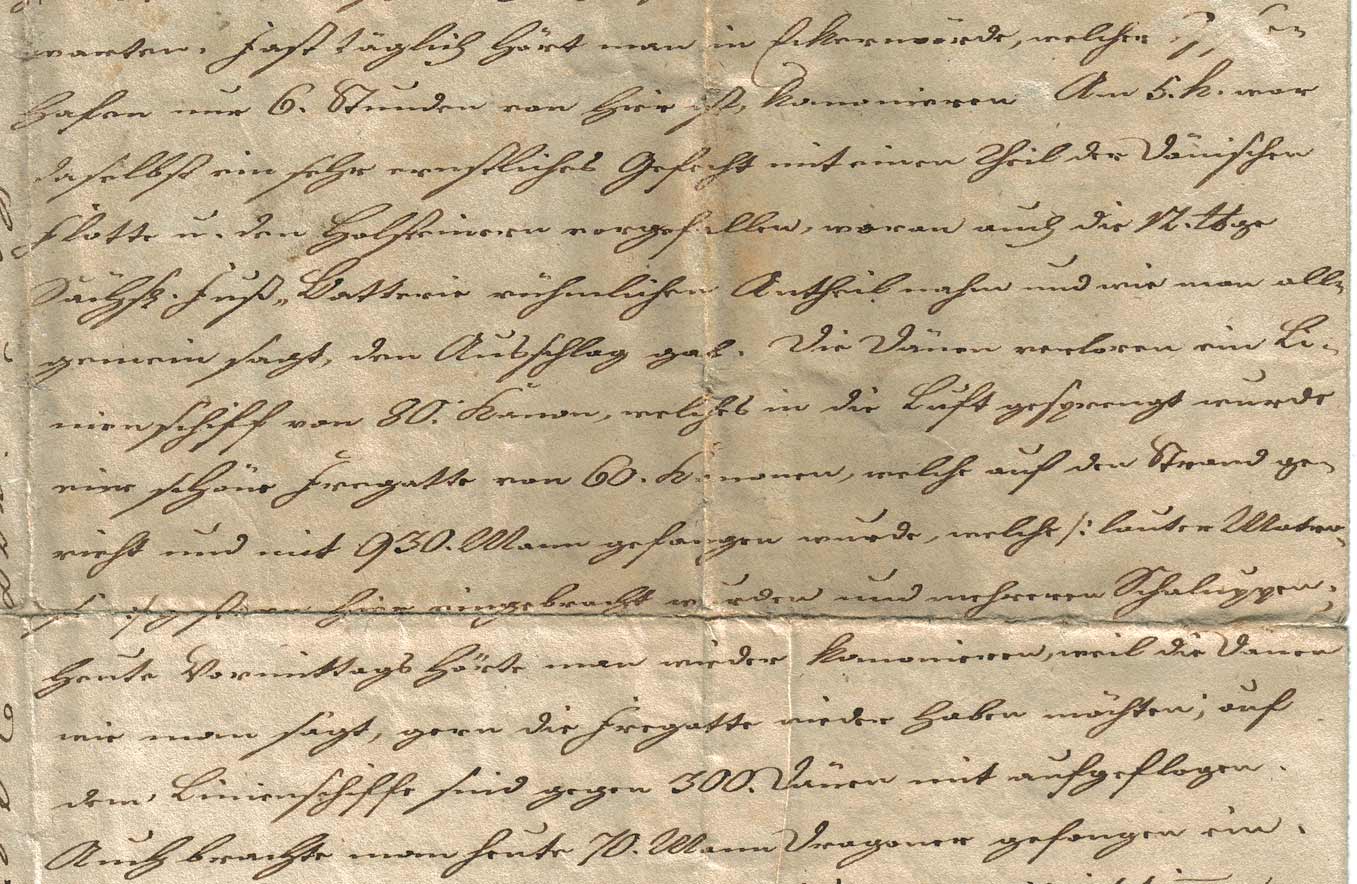 warten. Fast täglich hört man in Eckernförde, welcher
Hafen nur 6. Stunden von hier ist, kanonieren Am 5. h. war
daselbst ein sehr ernstliches Gefecht mit einen Theil der Dänischen
Flotte u. den Holsteinern vorgefallen, woran auch die 12. ℔ge
Sächß. Fuß-Batterie rühmlichen Antheil nahm und wie man all-
gemein sagt, den Ausschlag gab. Die Dänen verloren ein Li-
nienschiff von 80. Kanon, welches in die Luft gesprengt wurde
eine schöne Fregatte von 60. Kanonen, welche auf den Strand ge-
rieht und mit 930. Mann gefangen wurde, welche /: lauter Matro-
gestern hier eingebracht wurden und mehreren Schaluppen,
Heute Vormittags hörte man wieder kanonieren, weil die Dänen
wie man sagt, gern die Fregatte wieder haben möchten; auf
dem Linienschiffe sind gegen 300. Dänen mit aufgeflogen.
Auch brachte man heute 70. Mann Dragoner gefangen ein.